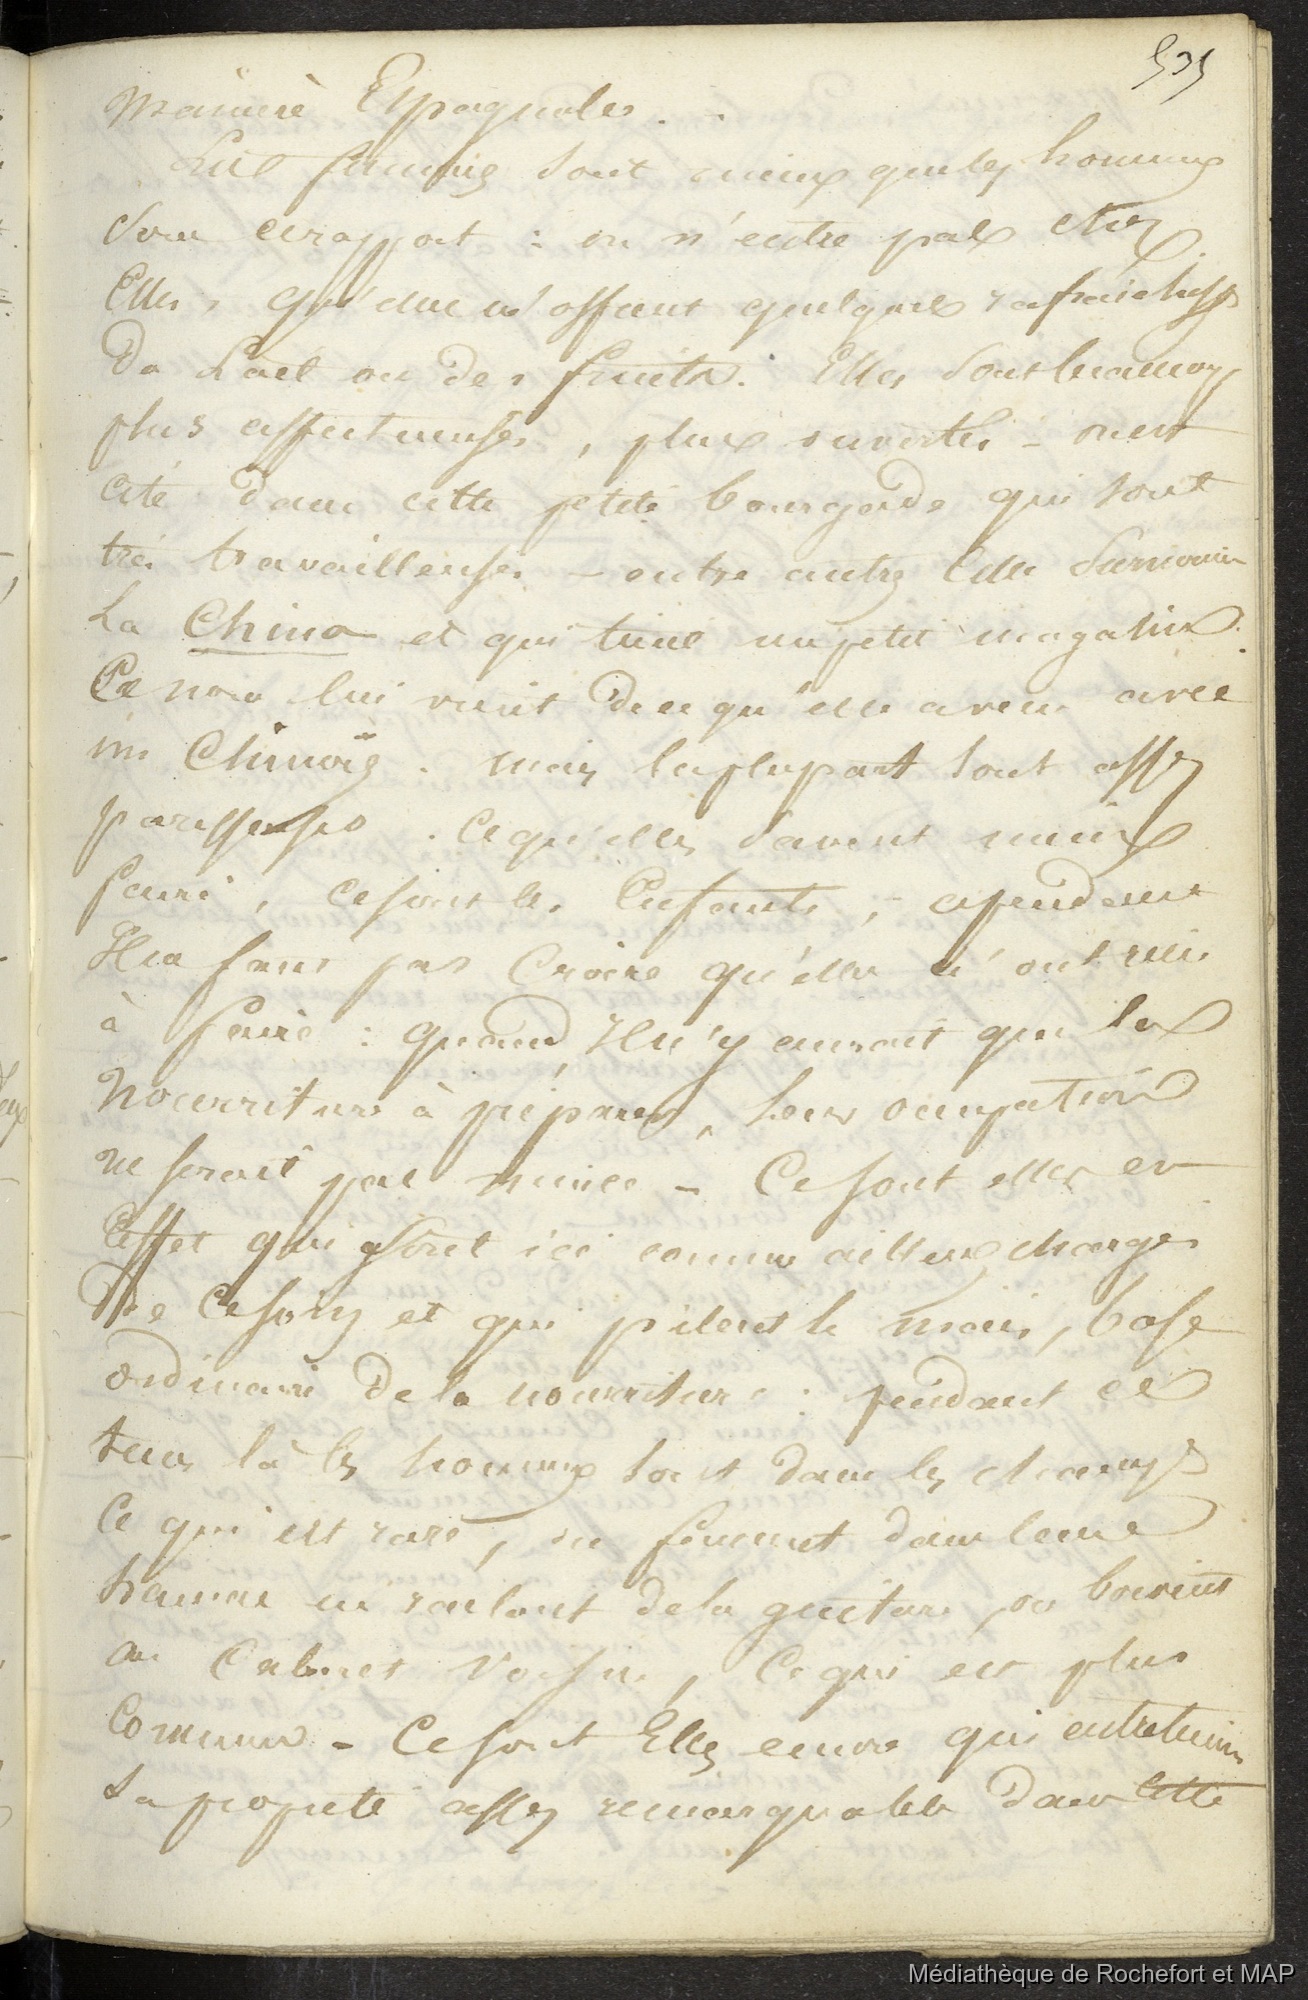 535
manière Espagnoles.
Les femmes sont mieux que les hommes
sous ce rapport : on n'entre pas chez
Elles, qu'elles n'offrent quelques rafraichiss
Du Lait ou des fruits. Elles sont beaucoup
plus affectueuses, plus ouvertes - on en
cite dans cette petite bourgade qui sont
très travailleuses - entre autres Celle surnommée
La China et qui tient un petit magasin.
Ce nom lui vient de ce qu'elle a vécu avec
un Chinois. mais la plupart sont assez
paresseuses. Ce qu'elles savent mieux
faire, ce sont les Enfants, - cependant
Il ne faut pas Croire qu'elles n'ont rien
à faire : quand Il n'y aurait que la
Nourriture à préparer, leur occupation
ne serait pas mince - Ce sont elles en
Effet qui sont ici comme ailleurs chargées
De Ce soin et qui pilent le maïs, base
ordinaire de la nourriture : pendant ce
tems là les hommes sont dans les champs
Ce qui est rare, ou fument dans leur
hamac en raclant de la guitare, ou boivent
au Cabaret voisin, Ce qui est plus
Commun - Ce sont Elles encore qui entretiennent
La propreté assez remarquable dans cette
Médiathèque de Rochefort et MAP